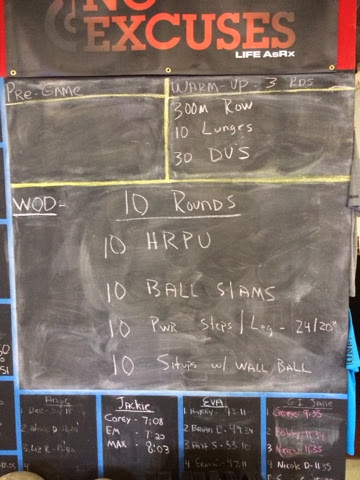 NO
EXCUSES
LIFE AsRx
PRE-GAME
WARM-UP - 3 RDS
300m Row
10 Lunges
30 DU'S
WOD-
10 ROUNDS
10 HRPU
10 BALL SLAMS
10 PWR Steps / Leg - 24/20"
10 Situps w/ WALL BALL
Jackie
Corey - 7:08
EM - 7:20
MAX - 8:03
EVA
G.I. Jane
1 George 9:55
2 Bobby 11:34
3
4 Nicole D-11:35